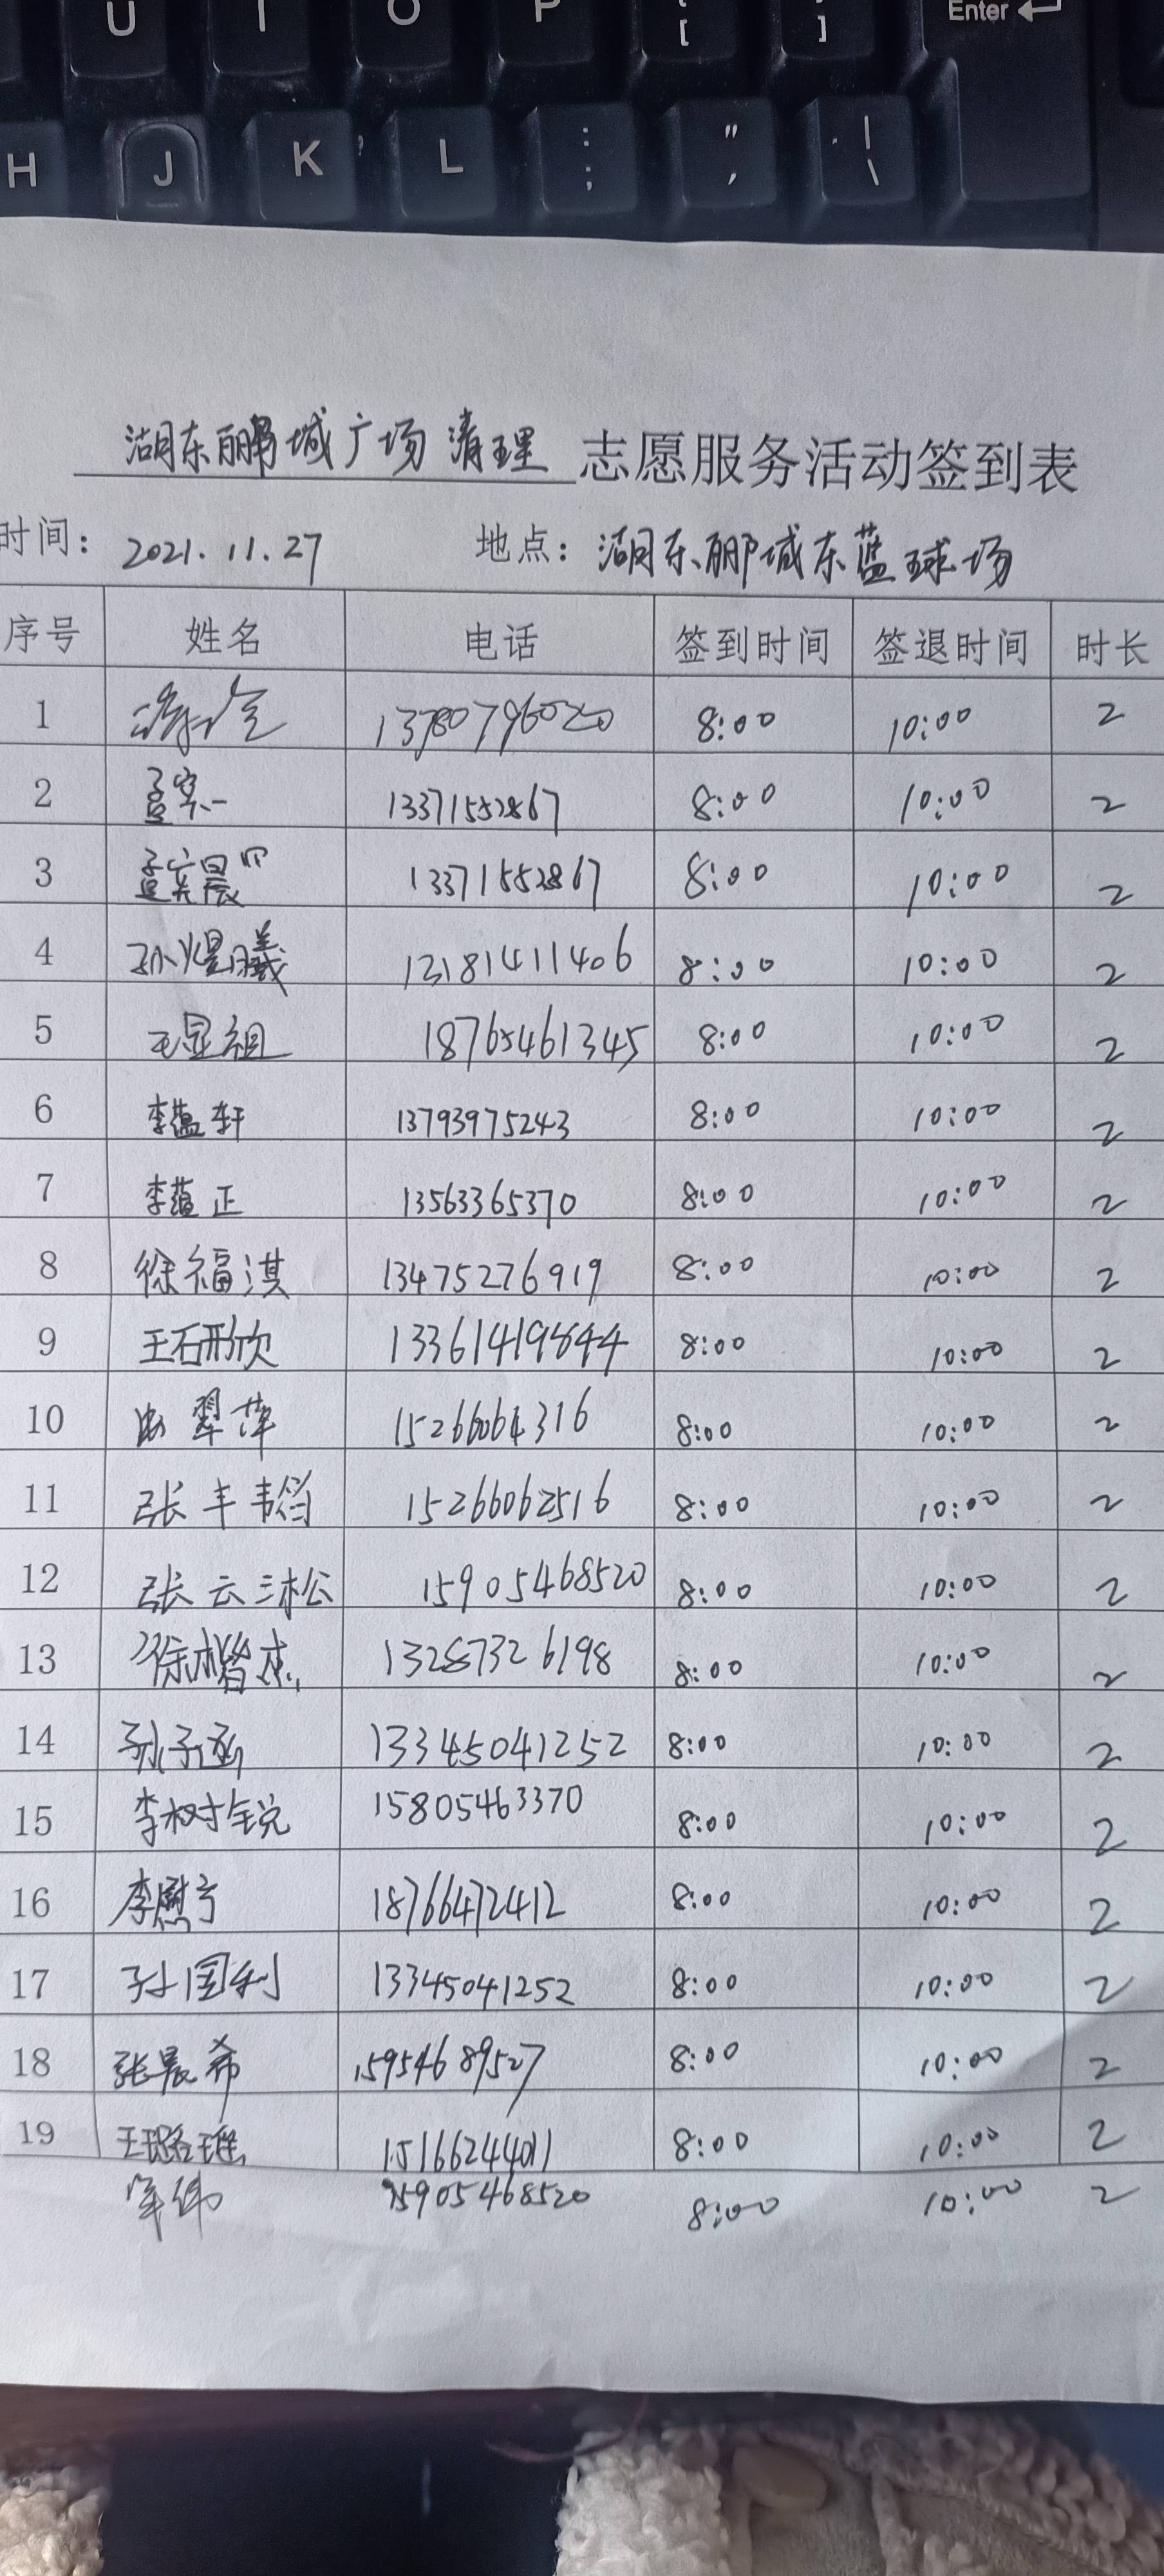 U I O P [ ] Enter
H J K L : ; " , | \
湖东鹏城广场清理 志愿服务活动签到表
时间: 2021.11.27 地点: 湖东鹏城东蓝球场
序号 姓名 电话 签到时间 签退时间 时长
1 13780796020 8:00 10:00 2
2 孟宪一 13371552867 8:00 10:00 2
3 13371552867 8:00 10:00 2
4 孙煜曦 13181411406 8:00 10:00 2
5 王显祖 18765461345 8:00 10:00 2
6 李蕴轩 13793975243 8:00 10:00 2
7 李蕴正 13563365370 8:00 10:00 2
8 徐福淇 13475276919 8:00 10:00 2
9 王石形欣 13361419844 8:00 10:00 2
10 翠萍 15266064316 8:00 10:00 2
11 张丰韬 15266062516 8:00 10:00 2
12 张云三松 15905468520 8:00 10:00 2
13 徐楷杰 13287326198 8:00 10:00 2
14 孙子涵 13345041252 8:00 10:00 2
15 李树锐 15805463370 8:00 10:00 2
16 李慰亏 18766472412 8:00 10:00 2
17 孙国利 13345041252 8:00 10:00 2
18 张晨希 15954689527 8:00 10:00 2
19 王璐瑶 15166244011 8:00 10:00 2
15905468520 8:00 10:00 2